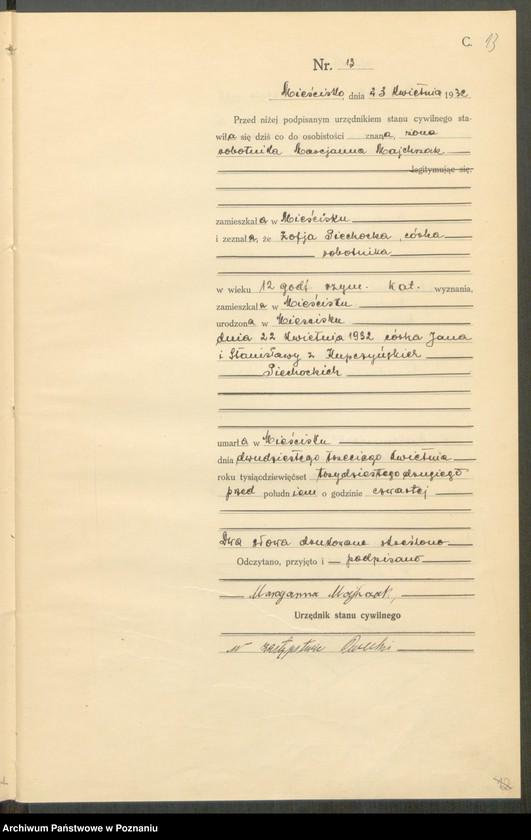 C. 13
Nr. 13
Mieścisko, dnia 23 Kwietnia 1932
Przed niżej podpisanym urzędnikiem stanu cywilnego sta-
wiła się dziś co do osobistości znana, żona
robotnika Marcjanna Majchrzak
legitymując się.
zamieszkała w Mieścisku
i zeznała, że Zofja Piechocka, córka
robotnika
w wieku 12 godź rzym. kat. wyznania,
zamieszkała w Mieścisku
urodzona w Mieścisku
dnia 22 Kwietnia 1932 córka Jana
i Stanisławy z Kupczyńskich
Piechockich
umarła w Mieścisku
dnia dwudziestego trzeciego Kwietnia
roku tysiącdziewięćset trzydziestego drugiego
przed południem o godzinie czwartej
Dwa słowa drukowane skreślono
Odczytano, przyjęto i podpisano
Marjanna Majchrzak,
Urzędnik stanu cywilnego
w zastępstwie
Archiwum Państwowe w Poznaniu